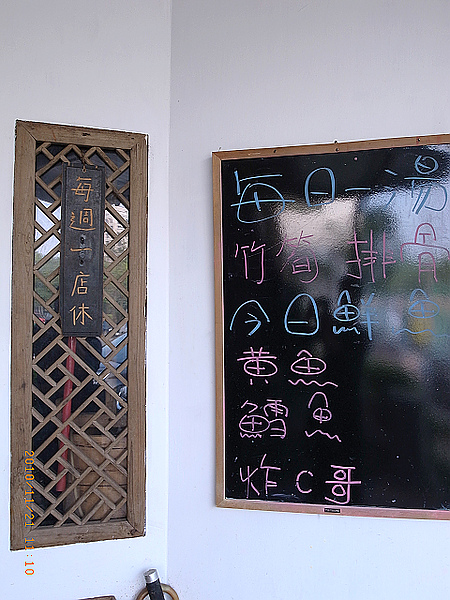 每週一店休
每日一湯
竹筍排骨
今日鮮魚
黃魚
鱈魚
炸C哥
2010/11/21 11:10